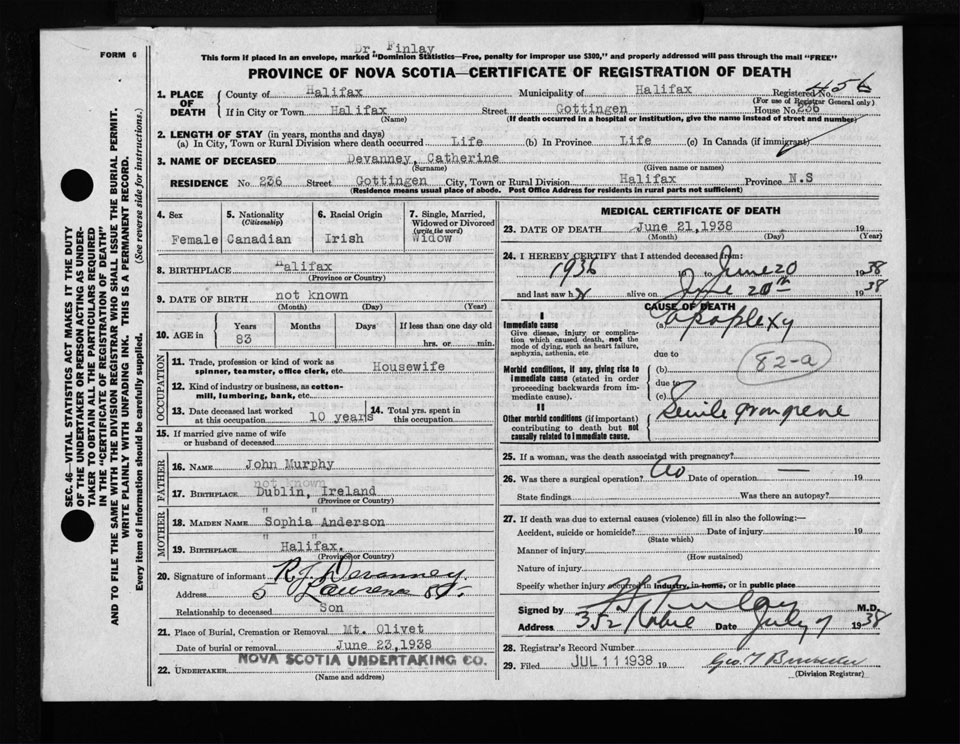 FORM 6
Dr. Finlay
This form if placed in an envelope, marked "Dominion Statistics—Free, penalty for improper use $300," and properly addressed will pass through the mail "FREE"
PROVINCE OF NOVA SCOTIA—CERTIFICATE OF REGISTRATION OF DEATH
1. PLACE OF DEATH County of Halifax Municipality of Halifax Registered No. 456
(For use of Registrar General only)
If in City or Town Halifax Street Gottingen House No. 236
(Name) (If death occurred in a hospital or institution, give the name instead of street and number)
2. LENGTH OF STAY (in years, months and days)
(a) In City, Town or Rural Division where death occurred Life (b) In Province Life (c) In Canada (if immigrant)
3. NAME OF DECEASED Devanney, Catherine
(Surname) (Given name or names)
RESIDENCE No. 236 Street Gottingen City, Town or Rural Division Halifax Province N.S
(Residence means usual place of abode. Post Office Address for residents in rural parts not sufficient)
4. Sex 5. Nationality (Citizenship) 6. Racial Origin 7. Single, Married, Widowed or Divorced (write the word)
Female Canadian Irish Widow
8. BIRTHPLACE Halifax
(Province or Country)
9. DATE OF BIRTH not known
(Month) (Day) (Year)
10. AGE in Years Months Days If less than one day old
83 hrs. or min.
OCCUPATION
11. Trade, profession or kind of work as spinner, teamster, office clerk, etc. Housewife
12. Kind of industry or business, as cotton-mill, lumbering, bank, etc.
13. Date deceased last worked at this occupation 10 years 14. Total yrs. spent in this occupation
15. If married give name of wife or husband of deceased
FATHER
16. NAME John Murphy
not known
17. BIRTHPLACE Dublin, Ireland
(Province or Country)
MOTHER
" "
18. MAIDEN NAME Sophia Anderson
" "
19. BIRTHPLACE Halifax.
(Province or Country)
20. Signature of informant R.J. Devanney
Address 5 Lawrence St.
Relationship to deceased Son
21. Place of Burial, Cremation or Removal Mt. Olivet
Date of burial or removal June 23, 1938
22. UNDERTAKER NOVA SCOTIA UNDERTAKING CO.
(Name and address)
MEDICAL CERTIFICATE OF DEATH
23. DATE OF DEATH June 21, 1938 19
(Month) (Day) (Year)
24. I HEREBY CERTIFY that I attended deceased from:
1936 19 to June 20 1938
and last saw h alive on June 20th 1938
CAUSE OF DEATH
I
Immediate cause (a) Apoplexy
Give disease, injury or complication which caused death, not the mode of dying, such as heart failure, asphyxia, asthenia, etc
due to
82-a
Morbid conditions, if any, giving rise to immediate cause (stated in order proceeding backwards from immediate cause).
(b)
due to
(c)
II
Other morbid conditions (if important) contributing to death but not causally related to immediate cause.
Senile grangrene
25. If a woman, was the death associated with pregnancy?
26. Was there a surgical operation? No Date of operation — 19
State findings Was there an autopsy?
27. If death was due to external causes (violence) fill in also the following:—
Accident, suicide or homicide? Date of injury 19
(State which)
Manner of injury
(How sustained)
Nature of injury
Specify whether injury occurred in industry, in home, or in public place
Signed by Finlay M.D.
Address 352 Robie Date July 7 1938
28. Registrar's Record Number
29. Filed JUL 11 1938 19
(Division Registrar)
SEC. 46—VITAL STATISTICS ACT MAKES IT THE DUTY
OF THE UNDERTAKER OR PERSON ACTING AS UNDER-
TAKER TO OBTAIN ALL THE PARTICULARS REQUIRED
IN THE "CERTIFICATE OF REGISTRATION OF DEATH"
AND TO FILE THE SAME WITH THE DIVISION REGISTRAR WHO SHALL ISSUE THE BURIAL PERMIT.
WRITE PLAINLY WITH UNFADING INK. THIS IS A PERMANENT RECORD.
Every item of information should be carefully supplied. (See reverse side for instructions.)